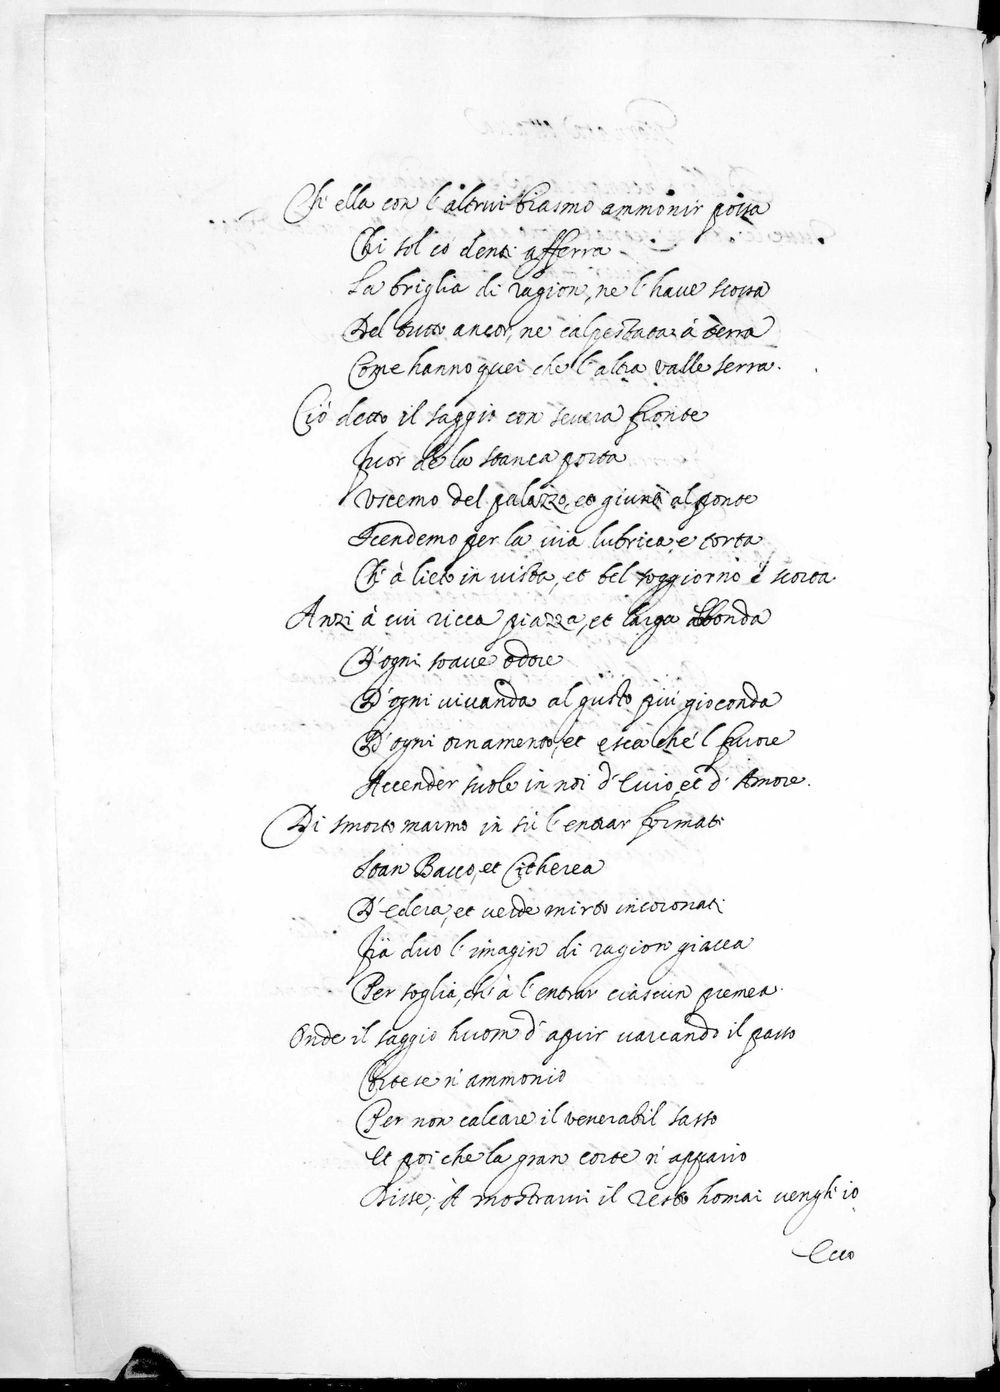 Ch' ella con l'altrui biasmo ammonir possa
Chi sol co denti afferra
La briglia di ragion, ne l'have scossa
Del tutto ancor, ne calpestata à terra
Come hanno quei che l'altra valle serra.
Ciò detto il saggio con severa fronte
Fuor de la stanca porta
Uscemo del palazzo, et giunti al ponte
Scendemo per la via lubrica, e torta
Ch' à lieta in vista, et bel soggiorno è scorta
Anzi à cui ricca piazza, et larga abbonda
D'ogni soave odore
D'ogni vivanda al gusto più gioconda
D'ogni ornamento, et esca che'l furore
Accender suole in noi d' Euio, et d' Amore.
Di smorto marmo in sù l'entrar formati
Stan Bacco, et Citherea
D'edera, et verde mirto incoronati
Frà duo l'imagin di ragion giacea
Per soglia, ch' à l'entrar ciascun premea.
Onde il saggio huom d' apuir varcando il passo
Cortese n' ammonio
Per non calcare il venerabil sasso
Et poi che la gran corte n' appario
Disse, à mostrarvi il resto homai vengh' io.
Ecco